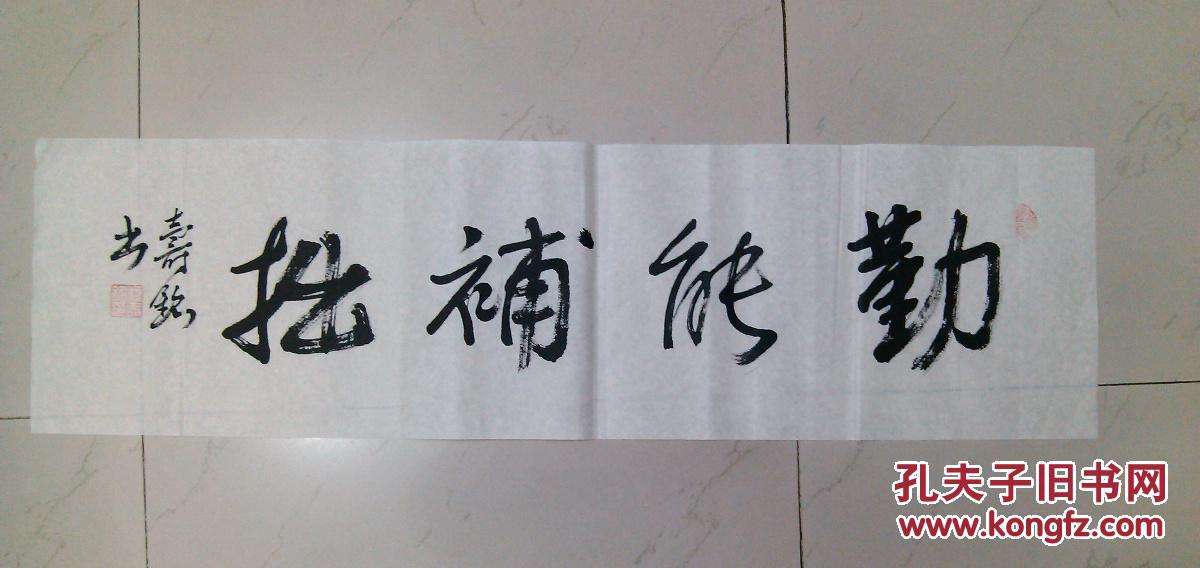 勤能補拙
壽銘
书
孔夫子旧书网
www.kongfz.com